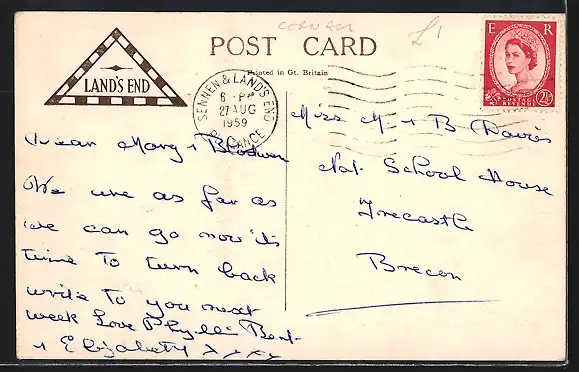 CORNWALL
£1
POST CARD
Printed in Gt. Britain
LAND'S END
SENNEN & LAND'S END
6 - PM
27 AUG
1959
PENZANCE
E R
POSTAGE
REVENUE
2½D
Dear Mary + Blodwen
We are as far as
we can go now it's
time to turn back
write to you next
week Love Phyllis Bert
+ Elizabeth xxxx
Miss M + B Davies
Nat. School House
Trecastle
Brecon